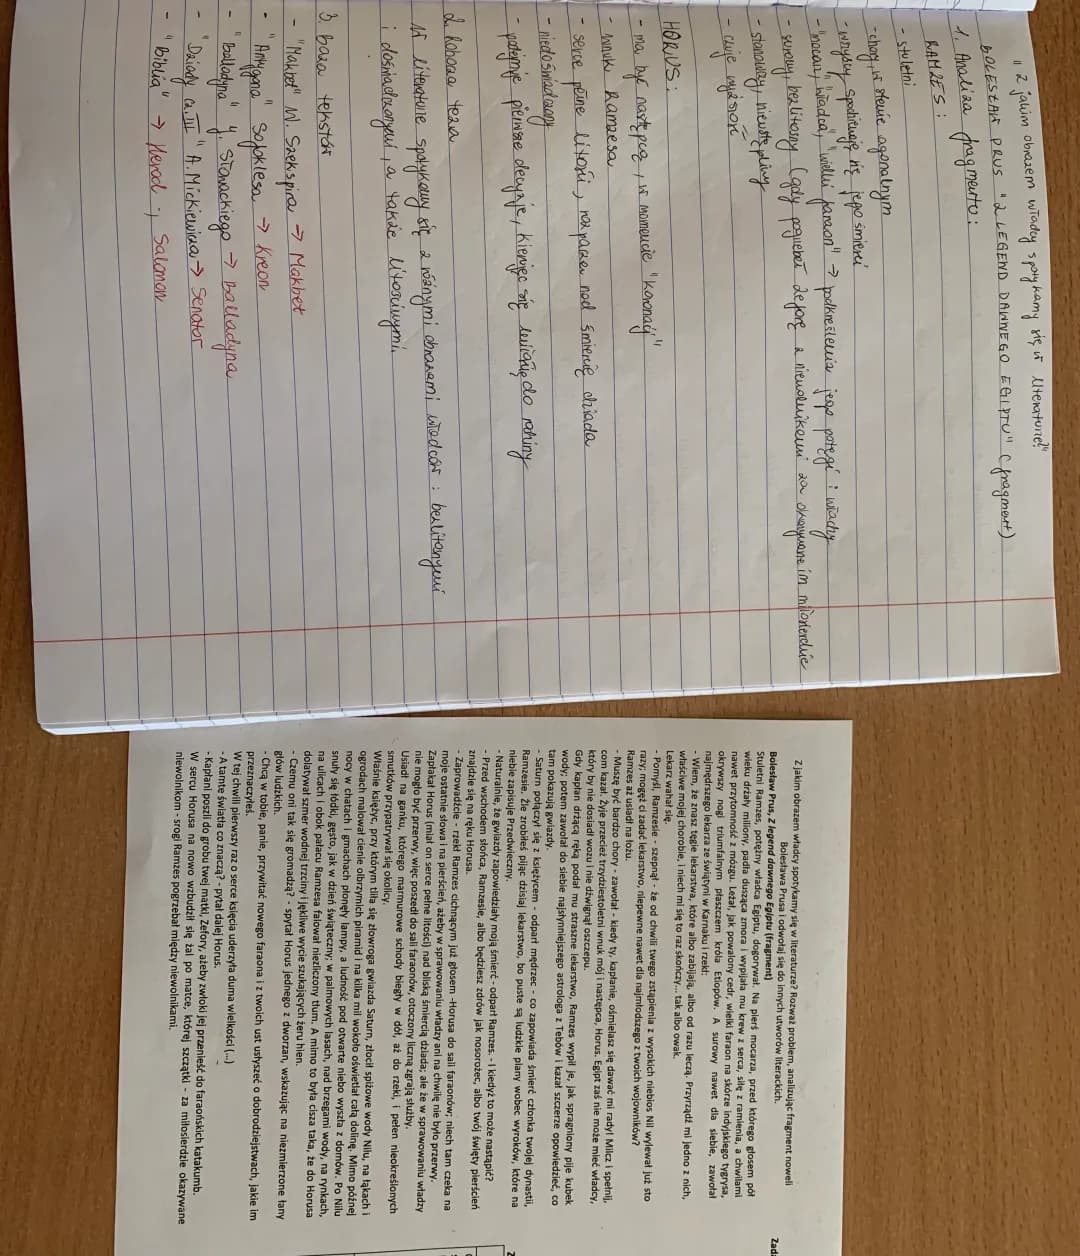 "Z jakim obrazem władcy spotykamy się w literaturze?"
BOLESŁAW PRUS "Z LEGEND DAWNEGO EGIPTU" (fragment)
1. Analiza fragmentu:
RAMZES:
- stuletni
- chory, w stanie agonalnym
- wszyscy spodziewają się jego śmierci
- "mocarz", "władca", "wielki faraon" → podkreślenie jego potęgi i władzy
- surowy, bezlitosny (gdy pogrzebał Zeforę z niewolnikami za okazywane im miłosierdzie
- stanowczy, nieustępliwy
- czuje wyższość
HORUS:
- ma być następcą, w momencie "koronacji"
- wnuk Ramzesa
- serce pełne litości, rozpacza nad śmiercią dziada
- niedoświadczony
- potępia pierwsze decyzje, kierując się do rodziny
2 Robocza teza
W literaturze spotykamy się z różnymi obrazami władców: bezlitosnymi
i doświadczonymi, a także litościwymi.
3 Baza tekstów
- "Makbet" W. Szekspira → Makbet
- "Antygona" Sofoklesa → Kreon
- "Balladyna" J. Słowackiego → Balladyna
- "Dziady cz. III" A. Mickiewicza → Senator
- "Biblia" → Herod i Salomon
Z jakim obrazem władcy spotykamy się w literaturze? Rozważ problem, analizując fragment noweli
Bolesława Prusa i odwołaj się do innych utworów literackich.
Bolesław Prus, Z legend dawnego Egiptu (fragment)
Stuletni Ramzes, potężny władca Egiptu, dogorywał. Na pierś mocarza, przed którego głosem pół
wieku drżały miliony, padła dusząca zmora i wypijała mu krew z serca, siłę z ramienia, a chwilami
nawet przytomność z mózgu. Leżał, jak powalony cedr, wielki faraon na skórze indyjskiego tygrysa,
okrywszy nogi triumfalnym płaszczem króla Etiopów. A surowy nawet dla siebie, zawołał
najmędrszego lekarza ze świątyni w Karnaku i rzekł:
- Wiem, że znasz tęgie lekarstwa, które albo zabijają, albo od razu leczą. Przyrządź mi jedno z nich,
właściwe mojej chorobie, i niech mi się to raz skończy... tak albo owak.
Lekarz wahał się.
- Pomyśl, Ramzesie - szepnął - że od chwili twego zstąpienia z wysokich niebios Nil wylewał już sto
razy; mogęż ci zadać lekarstwo, niepewne nawet dla najmłodszego z twoich wojowników?
Ramzes aż usiadł na łożu.
- Muszę być bardzo chory - zawołał - kiedy ty, kapłanie, ośmielasz się dawać mi rady! Milcz i spełnij,
com kazał. Żyje przecież trzydziestoletni wnuk mój i następca, Horus. Egipt zaś nie może mieć władcy,
który by nie dosiadł wozu i nie dźwignął oszczepu.
Gdy kapłan drżącą ręką podał mu straszne lekarstwo, Ramzes wypił je, jak spragniony pije kubek
wody; potem zawołał do siebie najsłynniejszego astrologa z Tebów i kazał szczerze opowiedzieć, co
tam pokazują gwiazdy.
- Saturn połączył się z księżycem - odparł mędrzec - co zapowiada śmierć członka twojej dynastii,
Ramzesie. Źle zrobiłeś pijąc dzisiaj lekarstwo, bo puste są ludzkie plany wobec wyroków, które na
niebie zapisuje Przedwieczny.
- Naturalnie, że gwiazdy zapowiedziały moją śmierć - odparł Ramzes. - I kiedyż to może nastąpić?
- Przed wschodem słońca, Ramzesie, albo będziesz zdrów jak nosorożec, albo twój święty pierścień
znajdzie się na ręku Horusa.
- Zaprowadźcie - rzekł Ramzes cichnącym już głosem -Horusa do sali faraonów; niech tam czeka na
moje ostatnie słowa i na pierścień, ażeby w sprawowaniu władzy ani na chwilę nie było przerwy.
Zapłakał Horus (miał on serce pełne litości) nad bliską śmiercią dziada; ale że w sprawowaniu władzy
nie mogło być przerwy, więc poszedł do sali faraonów, otoczony liczną zgrają służby.
Usiadł na ganku, którego marmurowe schody biegły w dół, aż do rzeki, i pełen nieokreślonych
smutków przypatrywał się okolicy.
Właśnie księżyc, przy którym tliła się złowroga gwiazda Saturn, złocił spiżowe wody Nilu, na łąkach i
ogrodach malował cienie olbrzymich piramid i na kilka mil wokoło oświetlał całą dolinę. Mimo późnej
nocy w chatach i gmachach płonęły lampy, a ludność pod otwarte niebo wyszła z domów. Po Nilu
snuły się łódki, gęsto, jak w dzień świąteczny; w palmowych lasach, nad brzegami wody, na rynkach,
na ulicach i obok pałacu Ramzesa falował niezliczony tłum. A mimo to była cisza taka, że do Horusa
dolatywał szmer wodnej trzciny i jękliwe wycie szukających żeru hien.
- Czemu oni tak się gromadzą? - spytał Horus jednego z dworzan, wskazując na niezmierzone łany
głów ludzkich.
- Chcą w tobie, panie, przywitać nowego faraona i z twoich ust usłyszeć o dobrodziejstwach, jakie im
przeznaczyłeś.
W tej chwili pierwszy raz o serce księcia uderzyła duma wielkości (...)
- A tamte światła co znaczą? - pytał dalej Horus.
- Kapłani poszli do grobu twej matki, Zefory, ażeby zwłoki jej przenieść do faraońskich katakumb.
W sercu Horusa na nowo wzbudził się żal po matce, której szczątki - za miłosierdzie okazywane
niewolnikom - srogi Ramzes pogrzebał między niewolnikami.
Zad